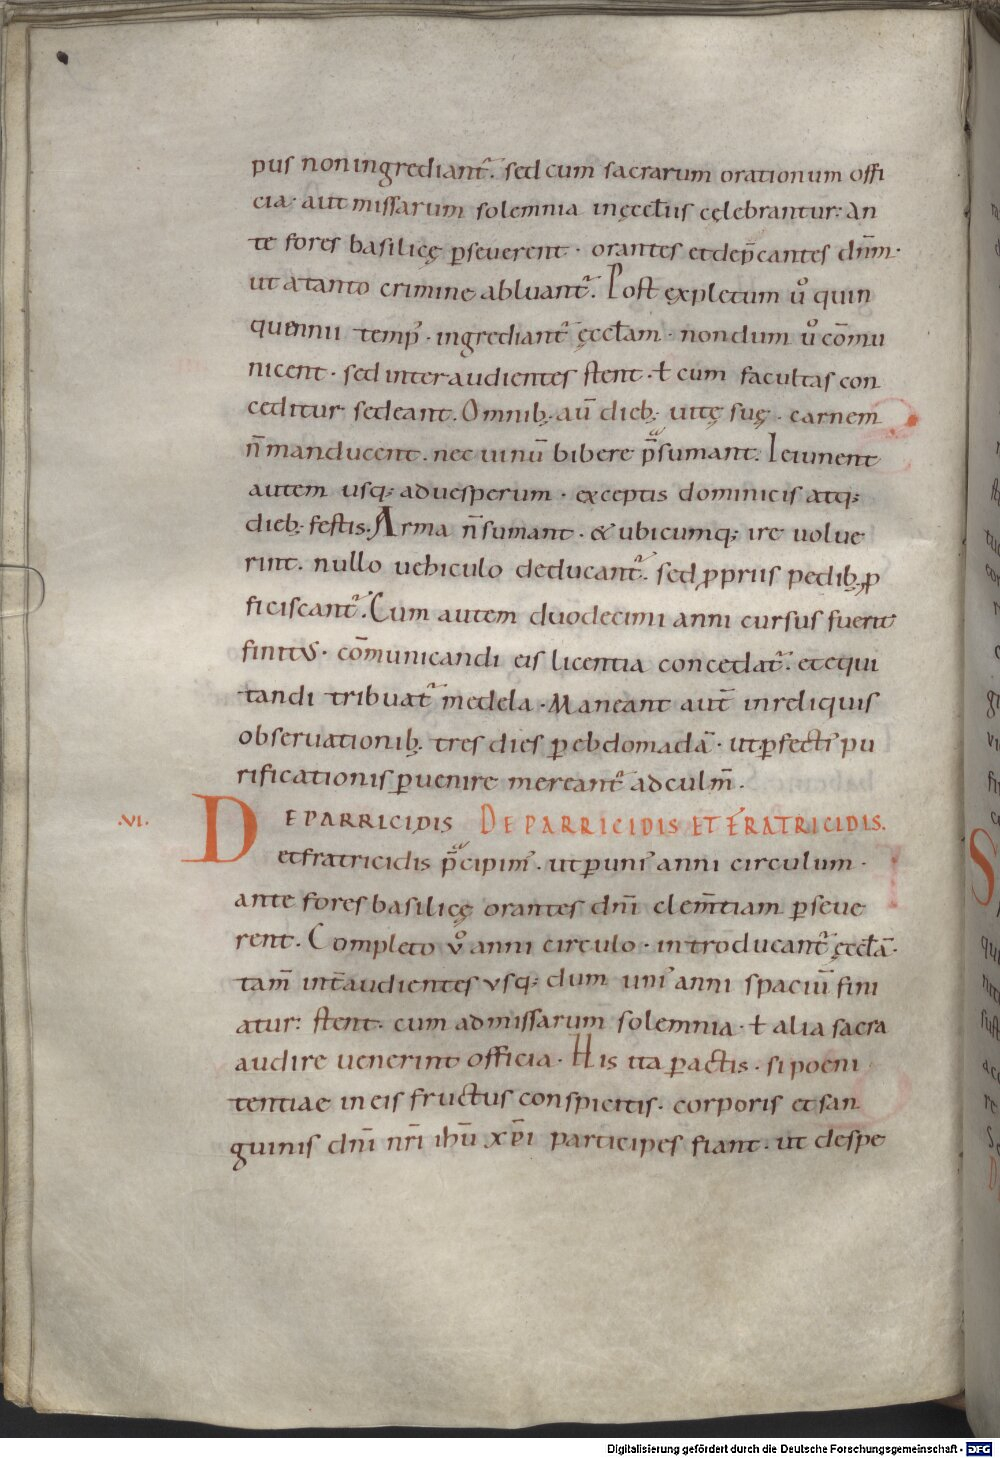 pus non ingrediant᷑. sed cum sacrarum orationum offi
cia· aut missarum solemnia in ęccl̄iis cęlebrantur: An
te fores basilicę ꝑseuerent· orantes et dep̄cantes dn̄m·
ut a tanto crimine abluant᷑. Post ęxpletum ůo quin
quennii temp᷒· ingrediant᷑ ęccl̄am· nondum ůo com̄u
nicent· sed inter audientes stent· ł cum facultas con
ceditur sedeant. Omnib; aū dieb; uitę suę· carnem
n̄ manducent. nec uinū bibere p̄sumant. Ieiunent
autem usq; ad uesperum· exceptis dominicis atq;
dieb; festis. Arma n̄ sumant· & ubicumq; ire uolue
rint. nullo uehiculo deducant᷑. sed ꝓpriis pedib; ꝓ
ficiscant᷑. Cum autem duodecimi anni cursus fuerit
finitus· com̄unicandi eis licentia concedat᷑. et equi
tandi tribuat᷑ medela· Maneant aut̄ in reliquis
obseruationib; tres dies ꝑ ebdomadā· ut ꝑfectę pu
rificationis ꝑuenire mereant᷑ ad culm̄.
·VI· DE PARRICIDIS DE PARRICIDIS ET FRATRICIDIS.
et fratricidis p̄cipim᷒. ut ꝑ uni᷒ anni circulum·
ante fores basilicę orantes dn̄i clem̄tiam ꝑseue
rent. Completo ůo anni circulo· introducant᷑ ęccl̄ā·
tam̄ int̄ audientes usq; dum uni᷒ anni spaciū fini
atur: stent. cum ad missarum solemnia· ł alia sacra
audire uenerint officia· His ita ꝑactis· si poeni
tentiae in eis fructus conspicitis· corporis et san
guinis dn̄i nr̄i ihū xp̄i participes fiant· ut despe
Digitalisierung gefördert durch die Deutsche Forschungsgemeinschaft - DFG